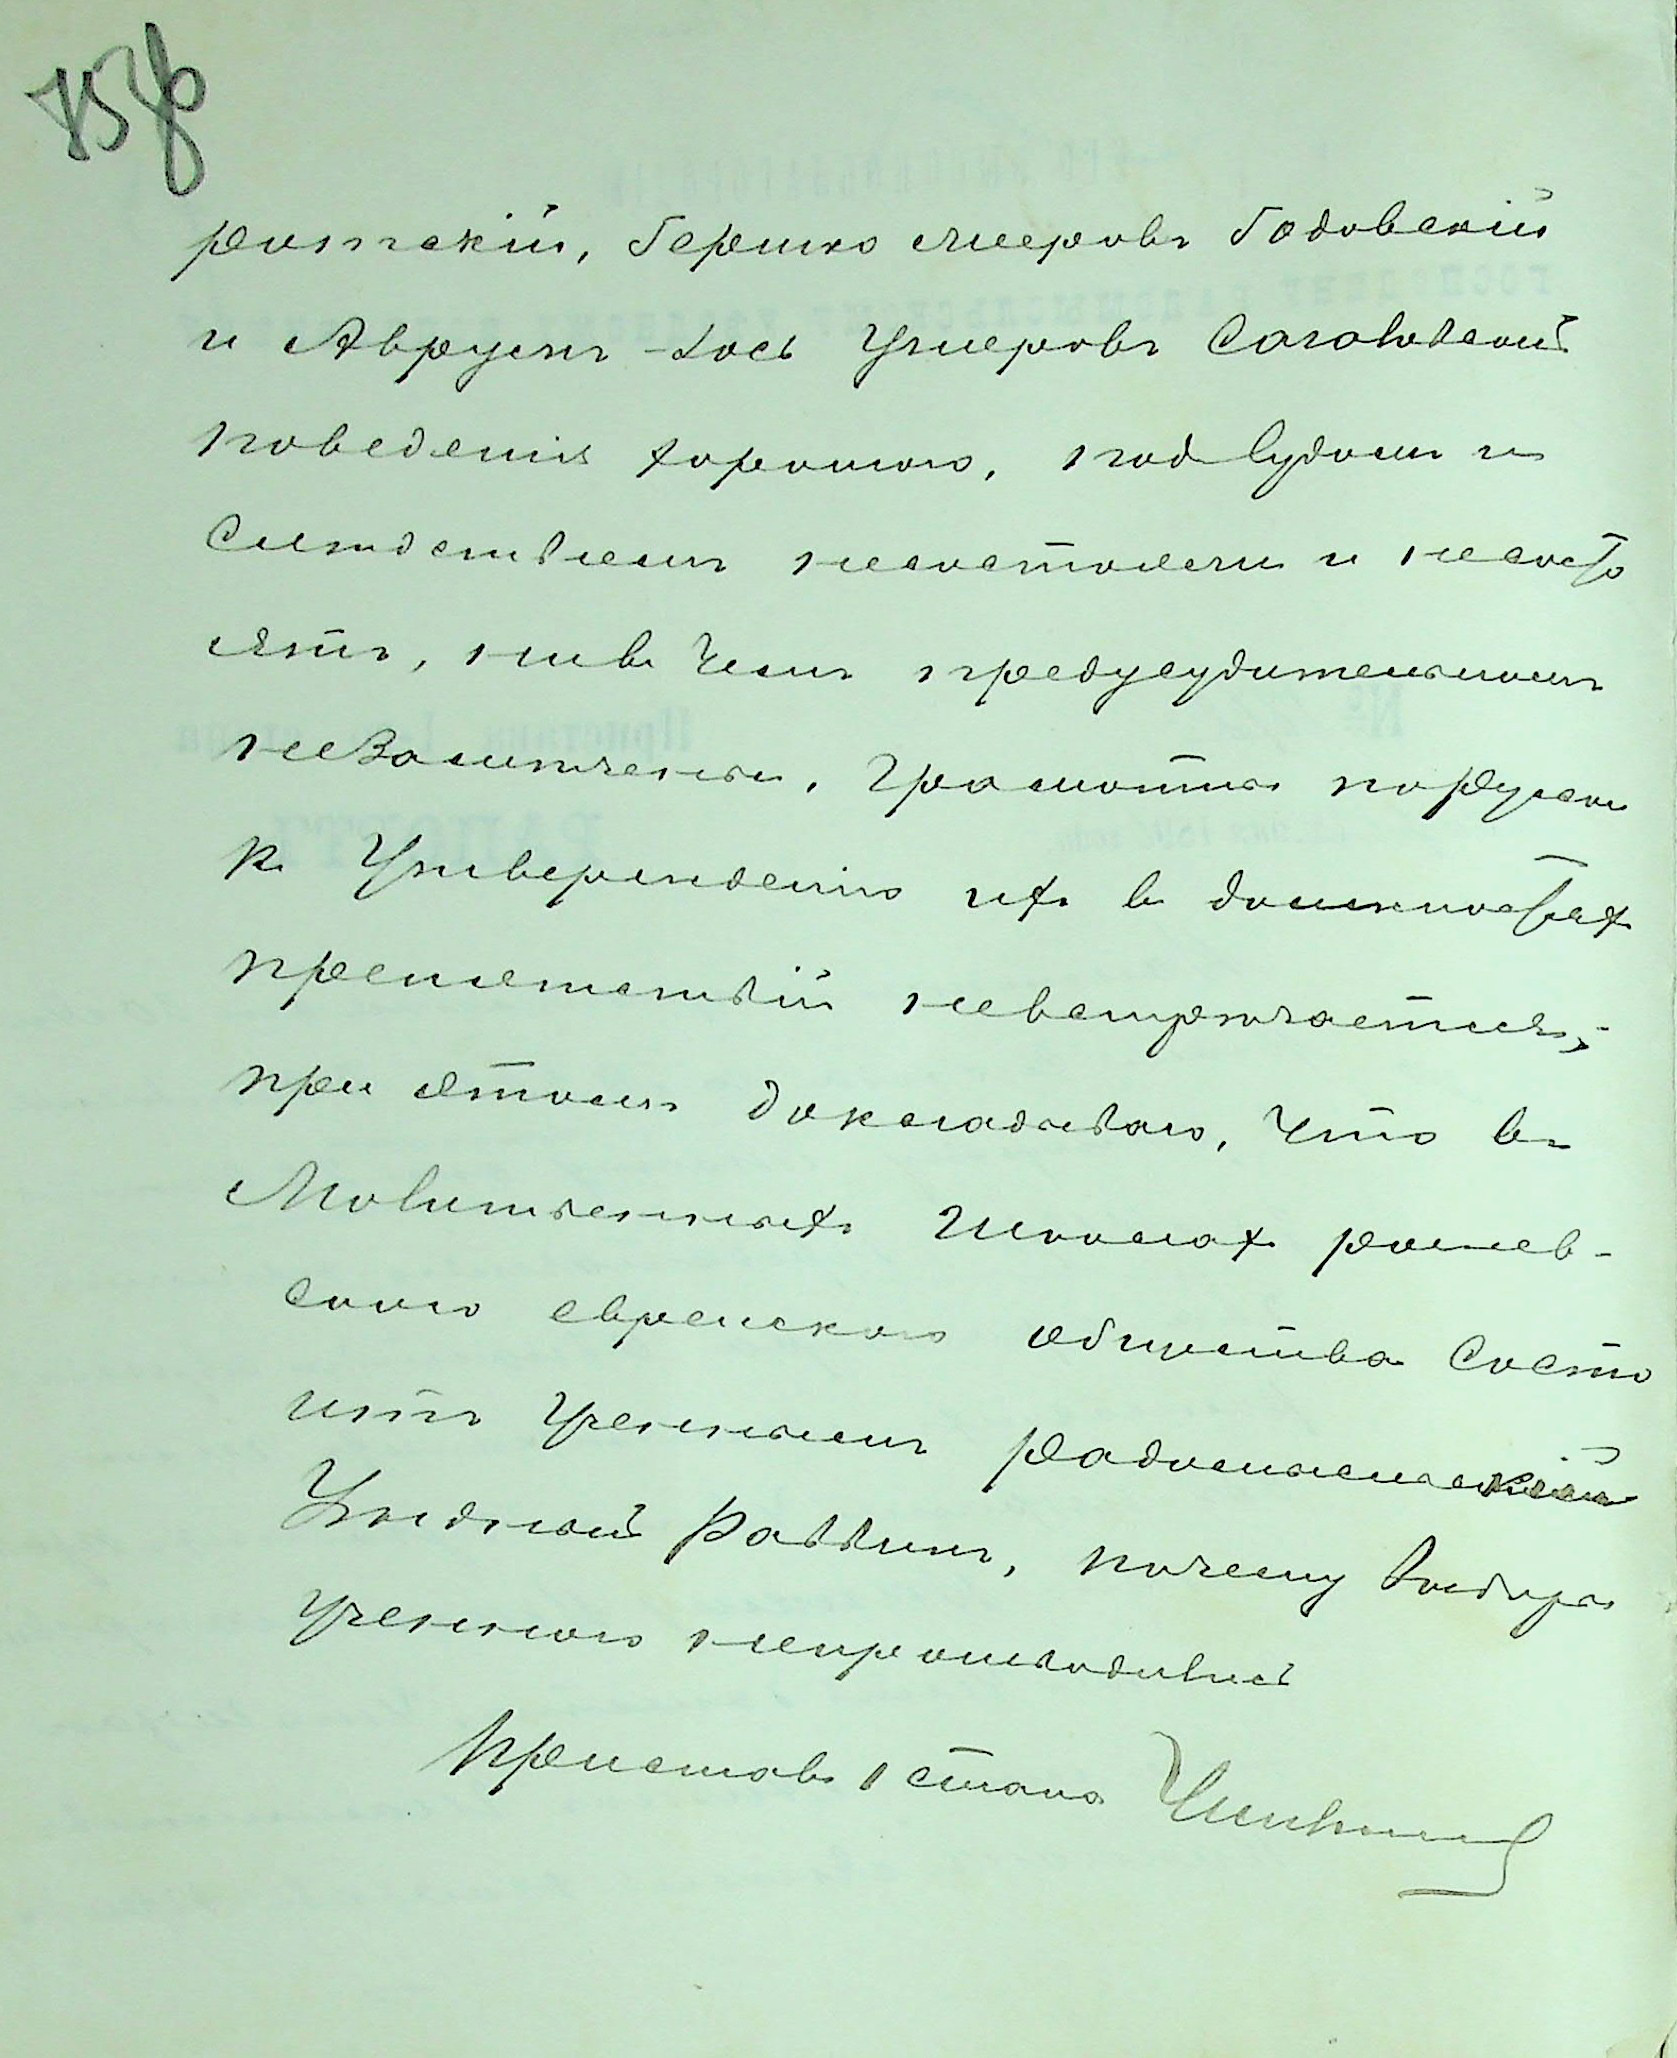 ротскій, Гершко Мееровъ Годовскій
и Аврумъ-Іось Умеровъ Сосновскій
поведенія хорошаго, подъ судомъ и
слѣдствіемъ несостояли и несосто
ятъ, ни въ чемъ предусудительномъ
незамѣчены, грамотны порусски
къ утвержденію ихъ въ должностяхъ
препятствій невстрѣчается;
при этомъ докладываю, что въ
Молитвенныхъ школахъ
скаго еврейскаго общества состо
итъ ученымъ Радомысльскій
Уѣздный Раввинъ, почему выбора
ученаго непроизводилось
Приставъ 1 стана